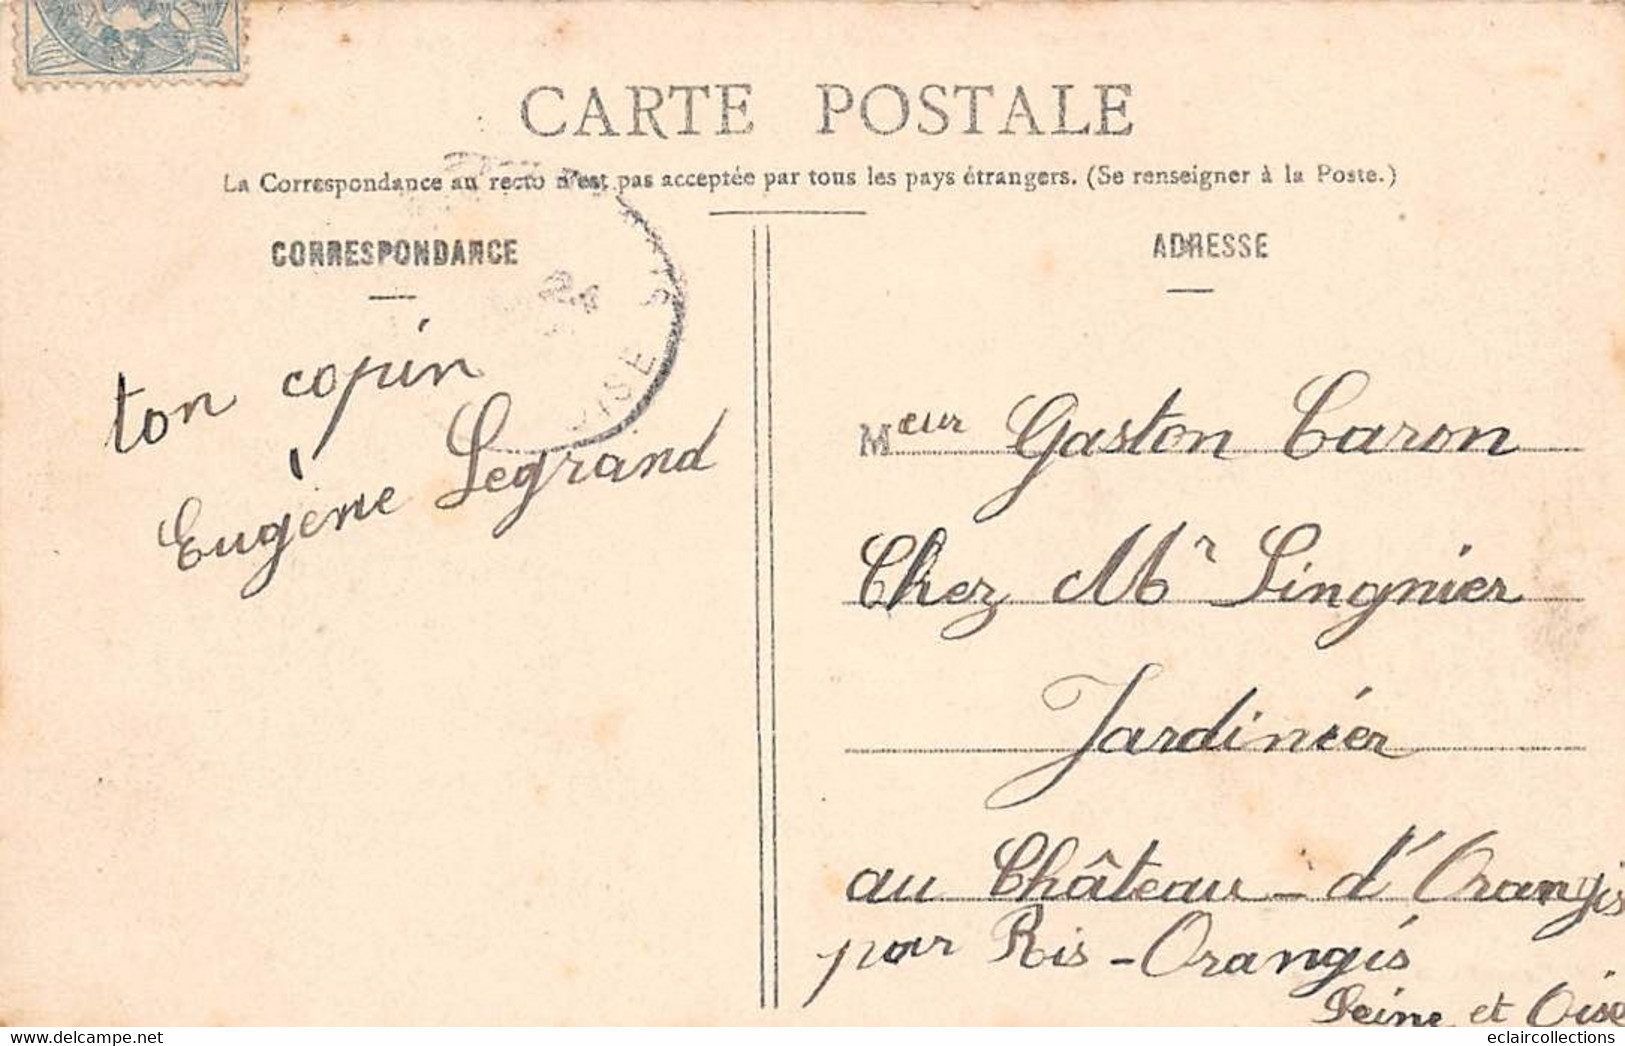 CARTE POSTALE
La Correspondance au recto n'est pas acceptée par tous les pays étrangers. (Se renseigner à la Poste.)
CORRESPONDANCE
ton copin
Eugène Legrand
ADRESSE
Meur Gaston Caron
Chez Mr Lingnier
Jardinier
au Château - d'Orangis
par Ris-Orangis
Seine et Oise
OISE
eclaircollections
www.delcampe.net